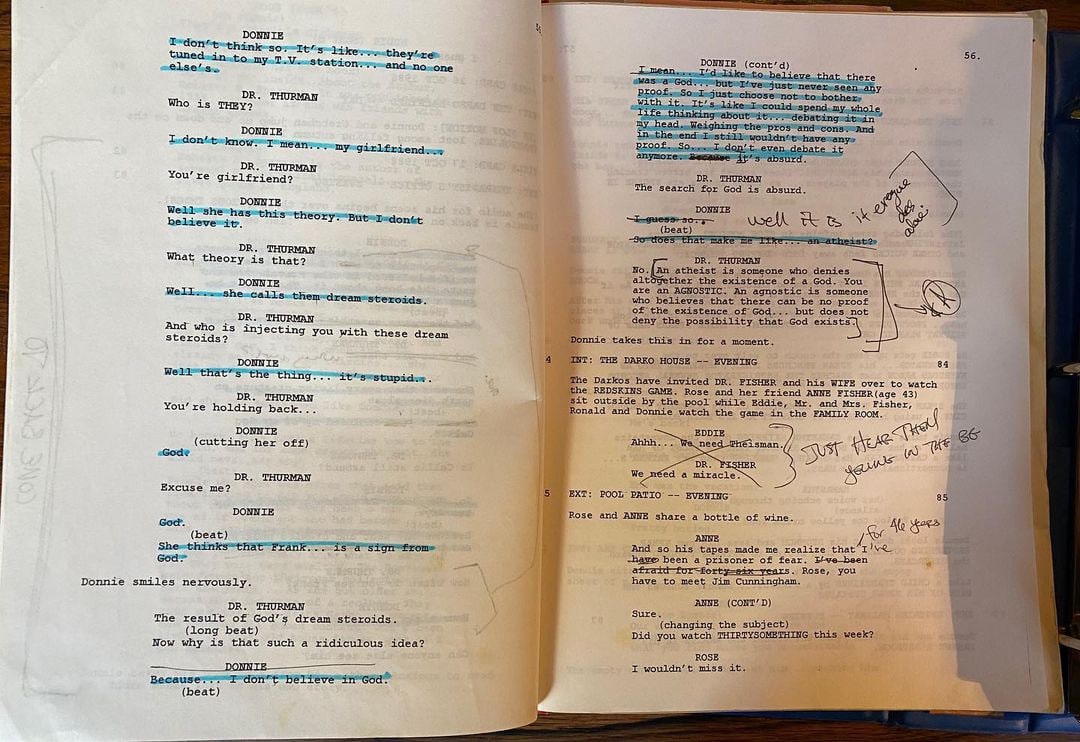 DONNIE
I don't think so. It's like... they're
tuned in to my T.V. station... and no one
else's.
DR. THURMAN
Who is THEY?
DONNIE
I don't know. I mean... my girlfriend...
DR. THURMAN
You're girlfriend?
DONNIE
Well she has this theory. But I don't
believe it.
DR. THURMAN
What theory is that?
DONNIE
Well... she calls them dream steroids.
DR. THURMAN
And who is injecting you with these dream
steroids?
DONNIE
Well that's the thing... it's stupid...
DR. THURMAN
You're holding back...
DONNIE
(cutting her off)
God.
DR. THURMAN
Excuse me?
DONNIE
God.
(beat)
She thinks that Frank... is a sign from
God.
Donnie smiles nervously.
DR. THURMAN
The result of God's dream steroids.
(long beat)
Now why is that such a ridiculous idea?
DONNIE
Because... I don't believe in God.
(beat)
56.
DONNIE (cont'd)
I mean... I'd like to believe that there
was a God... but I've just never seen any
proof. So I just choose not to bother
with it. It's like I could spend my whole
life thinking about it... debating it in
my head. Weighing the pros and cons. And
in the end I still wouldn't have any
proof. So... I don't even debate it
anymore. Because it's absurd.
DR. THURMAN
The search for God is absurd.
DONNIE
I guess so.. well it is if everyone
dies
alone.
(beat)
So does that make me like... an atheist?
DR. THURMAN
No. An atheist is someone who denies
altogether the existence of a God. You
are an AGNOSTIC. An agnostic is someone
who believes that there can be no proof
of the existence of God... but does not
deny the possibility that God exists.
Donnie takes this in for a moment.
4 INT: THE DARKO HOUSE -- EVENING 84
The Darkos have invited DR. FISHER and his WIFE over to watch
the REDSKINS GAME. Rose and her friend ANNE FISHER(age 43)
sit outside by the pool while Eddie, Mr. and Mrs. Fisher,
Ronald and Donnie watch the game in the FAMILY ROOM.
EDDIE
Ahhh... We need Theisman.
DR. FISHER
We need a miracle.
JUST HEAR THEM
IN THE BG
5 EXT: POOL PATIO -- EVENING 85
Rose and ANNE share a bottle of wine.
for 46 years
ANNE
And so his tapes made me realize that I've
have been a prisoner of fear. I've been
afraid for forty-six years. Rose, you
have to meet Jim Cunningham.
ANNE (CONT'D)
Sure.
(changing the subject)
Did you watch THIRTYSOMETHING this week?
ROSE
I wouldn't miss it.